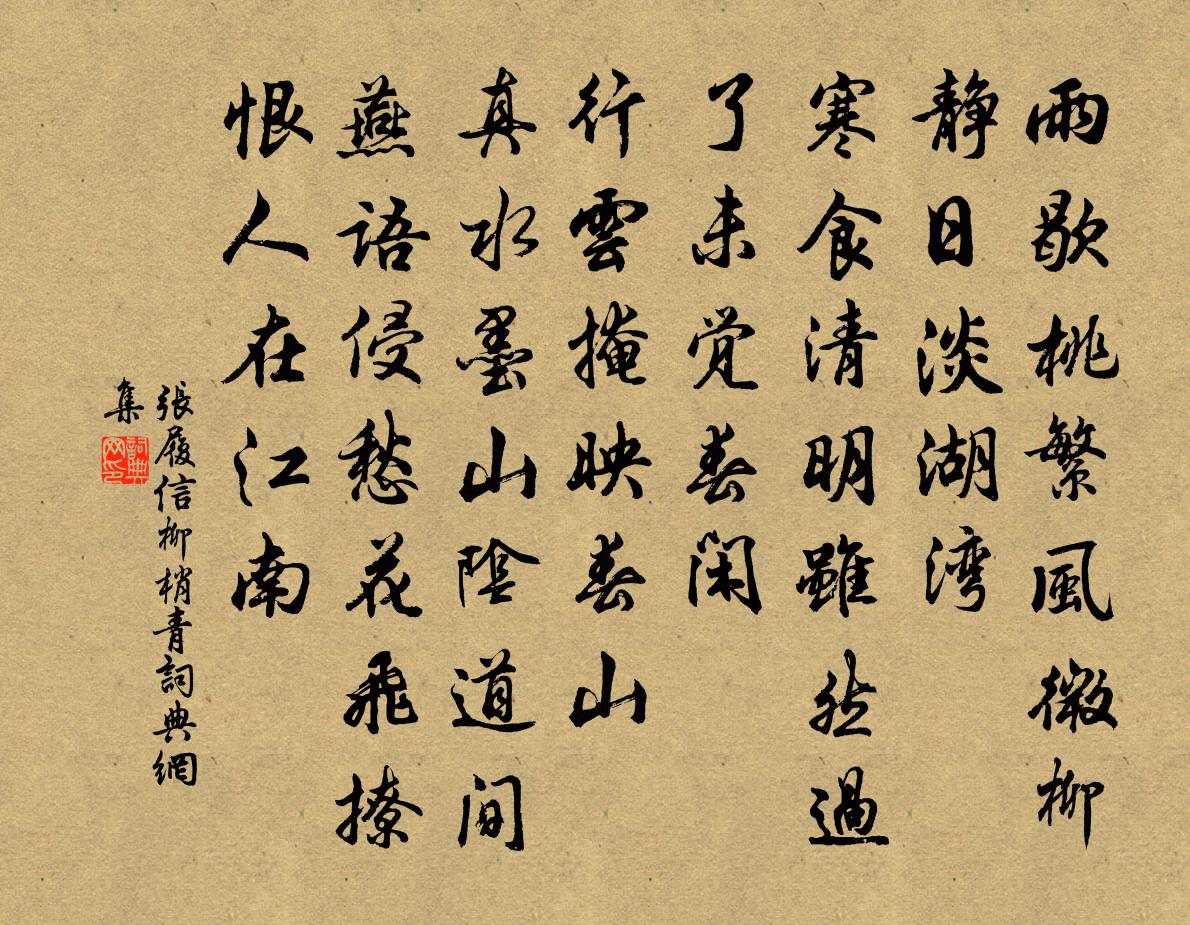 雨歇桃繁風微柳
静日淡湖湾
寒食清明雖然過
了未覚春閑
行雲掩映春山
真水墨山陰道間
燕語侵愁花飛撩
恨人在江南
張履信柳梢青詞典網
集
詞典网印